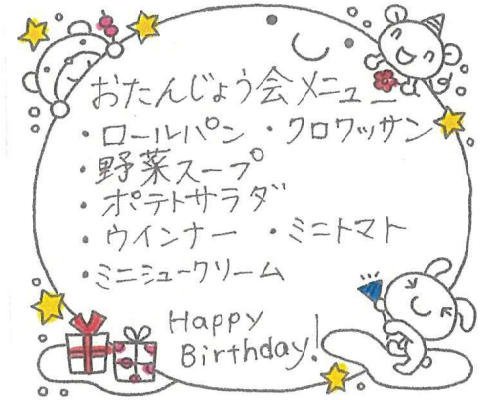 おたんじょう会メニュー
・ロールパン ・クロワッサン
・野菜スープ
・ポテトサラダ
・ウインナー ・ミニトマト
・ミニシュークリーム
Happy
Birthday!